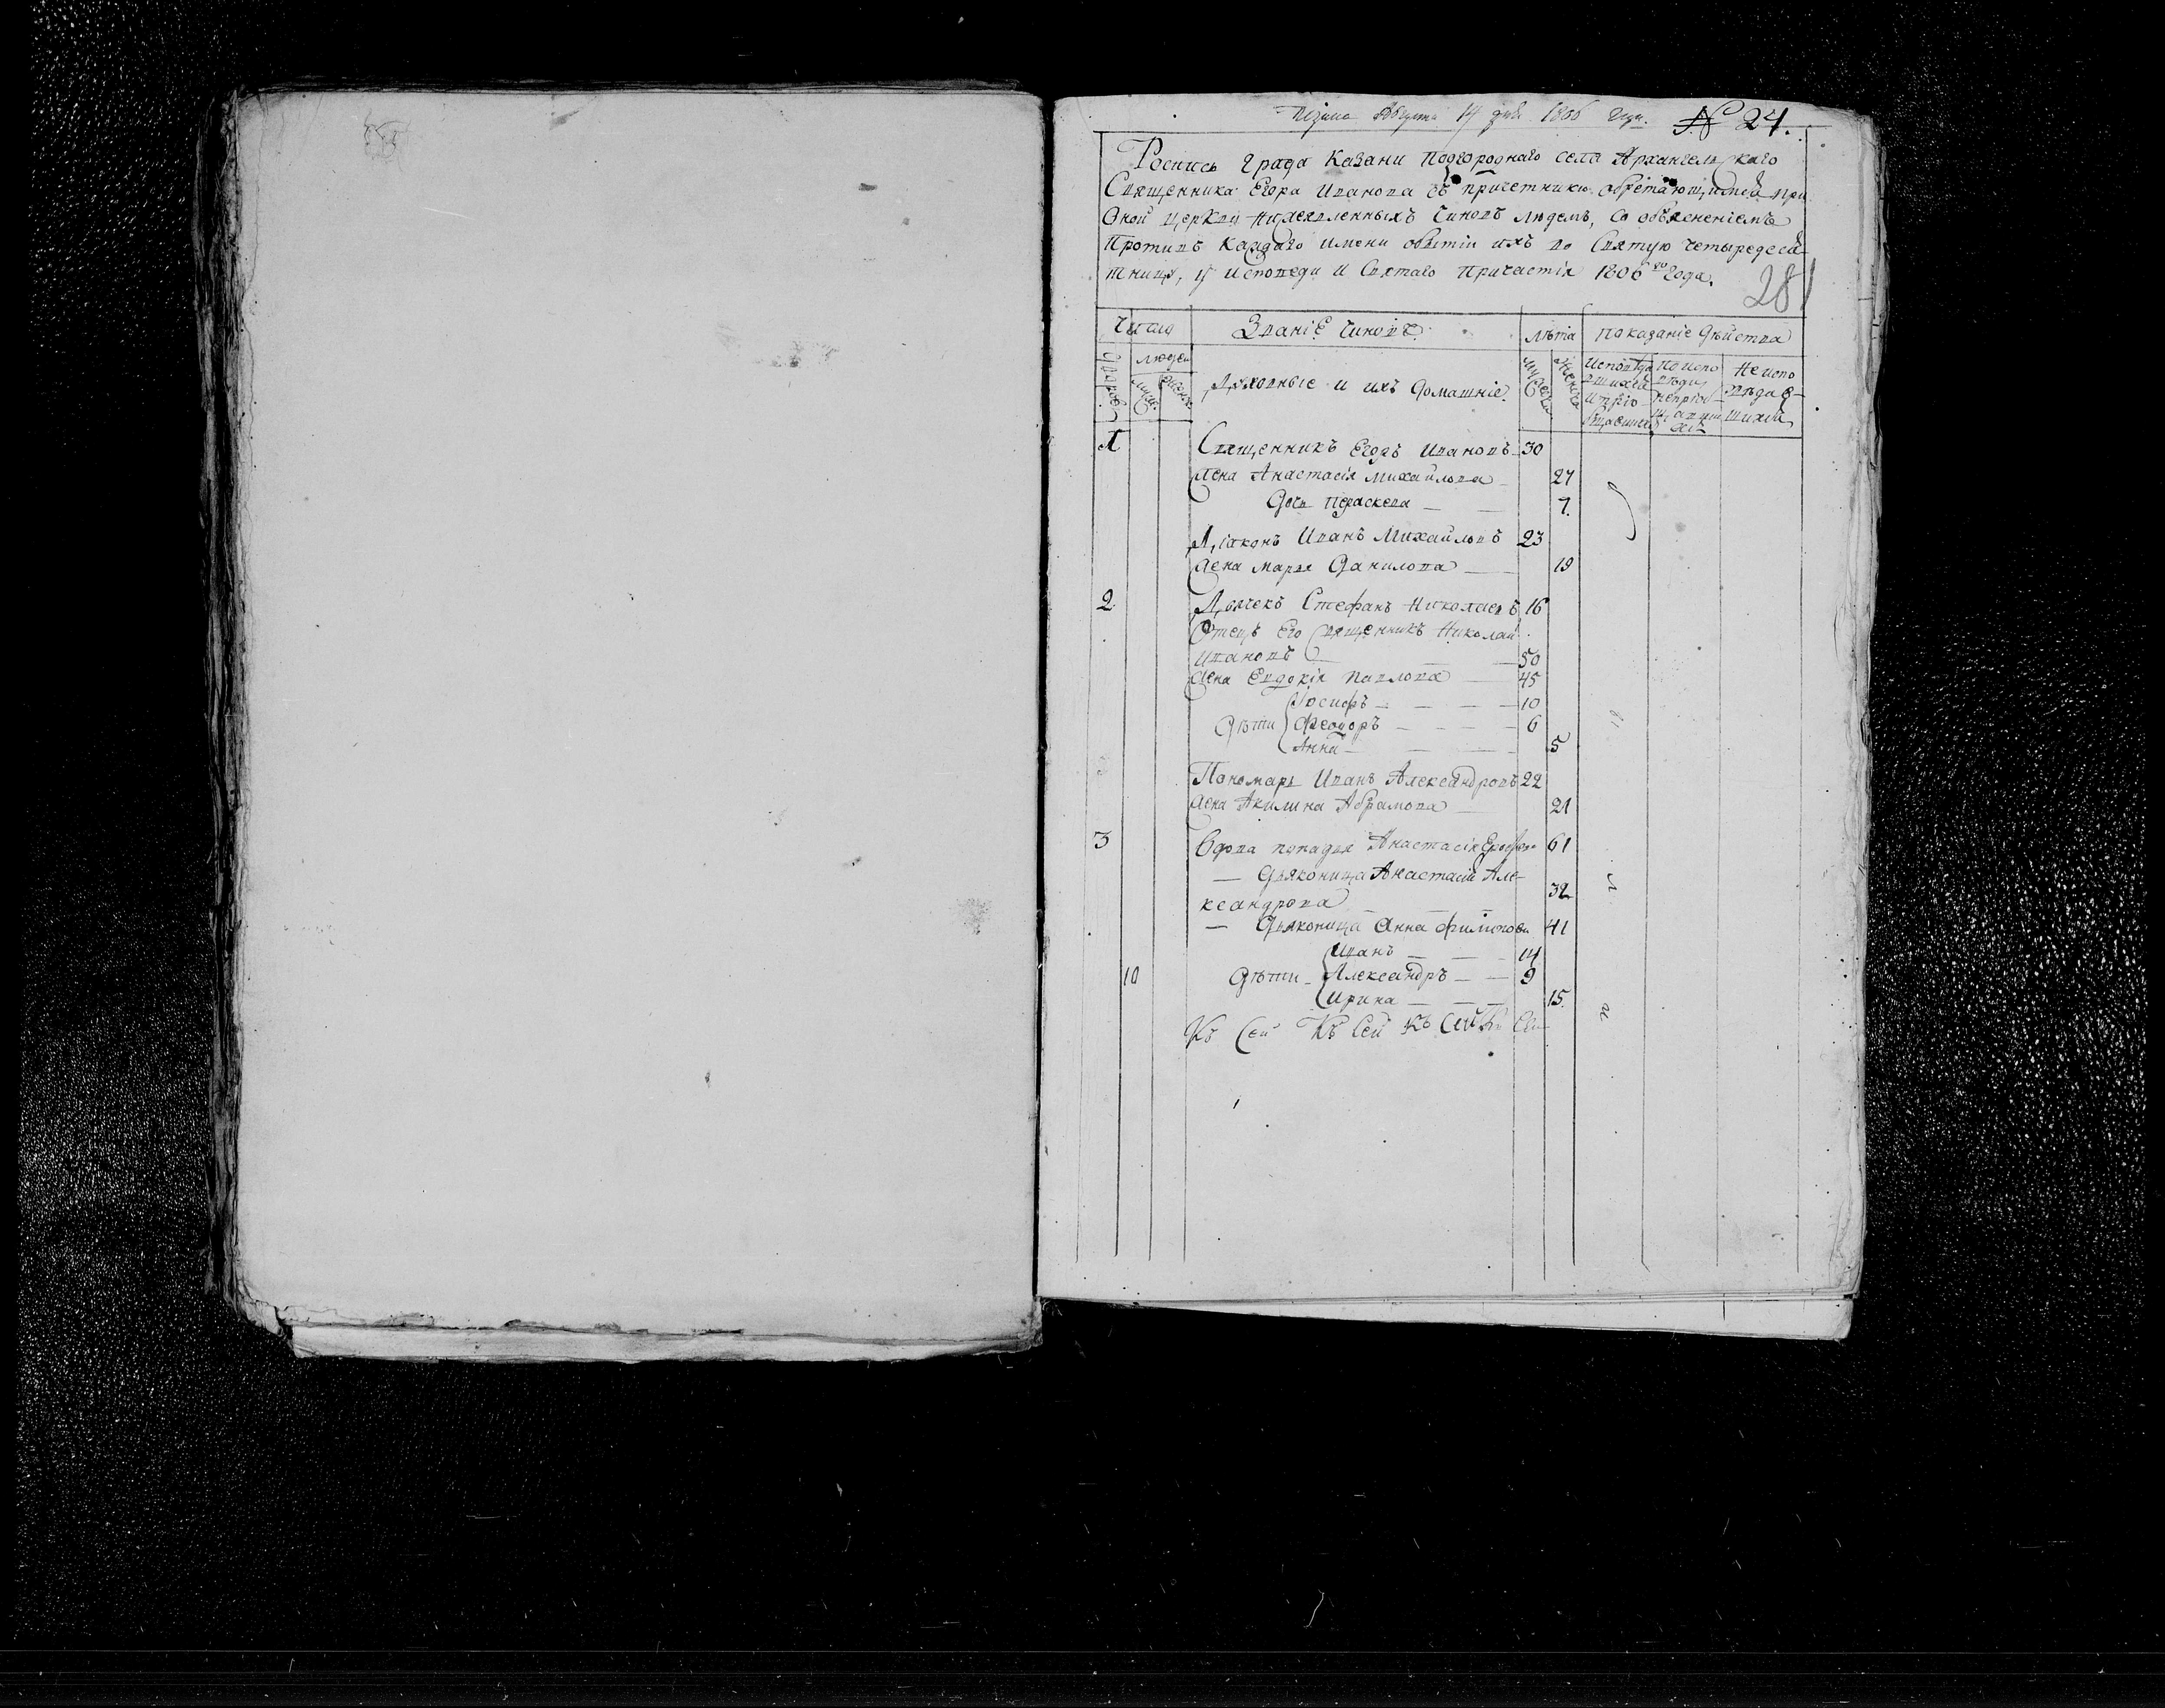 Августа 14 дня 1806 года. № 24.
Роспись града Казани подгороднаго села Архангельскаго
Священника Егора Иванова съ причетники обретающимся при
оной церкви нижеявленныхъ чиновъ людемъ, со объясненіемъ
противъ каждаго имени о бытіи ихъ во Святую четыредеся-
тницу, у исповеди и Святаго Причастія 1806го года.
281
Число
Званіе чиновъ
лѣта
показаніе дѣйства
людей
Дворовъ
муж.
женс
Духовные и ихъ домашніе.
мужеска
женска
Исповѣда
вшихся
и прїо
бщавшихся
по испо
вѣди
непріо
щавши
хся
Не испо
вѣдав
шихся
1 Священникъ Егоръ Ивановъ 30
Жена Анастасія Михайлова 27
Дочь Параскева 7.
Діаконъ Иванъ Михайловъ 23
Жена Марья Данилова 19
2 Дьячекъ Стефанъ Николаевъ 16
Отецъ Его Священникъ Николай
Ивановъ 50
Жена Евдокія Павлова 45
Іосифъ 10
Дѣти Феодоръ 6
Анна 5
Пономарь Иванъ Александровъ 22
Жена Акилина Абрамова 21
3 Вдова попадья Анастасія 61
— Дьяконица Анастасія Але-
ксандрова 32
— Дьяконица Анна Филипова 41
Иванъ 14
10 Дѣти Александръ 9
Ирина 15.
Къ Сей Къ Сей Къ Сей Къ Сей